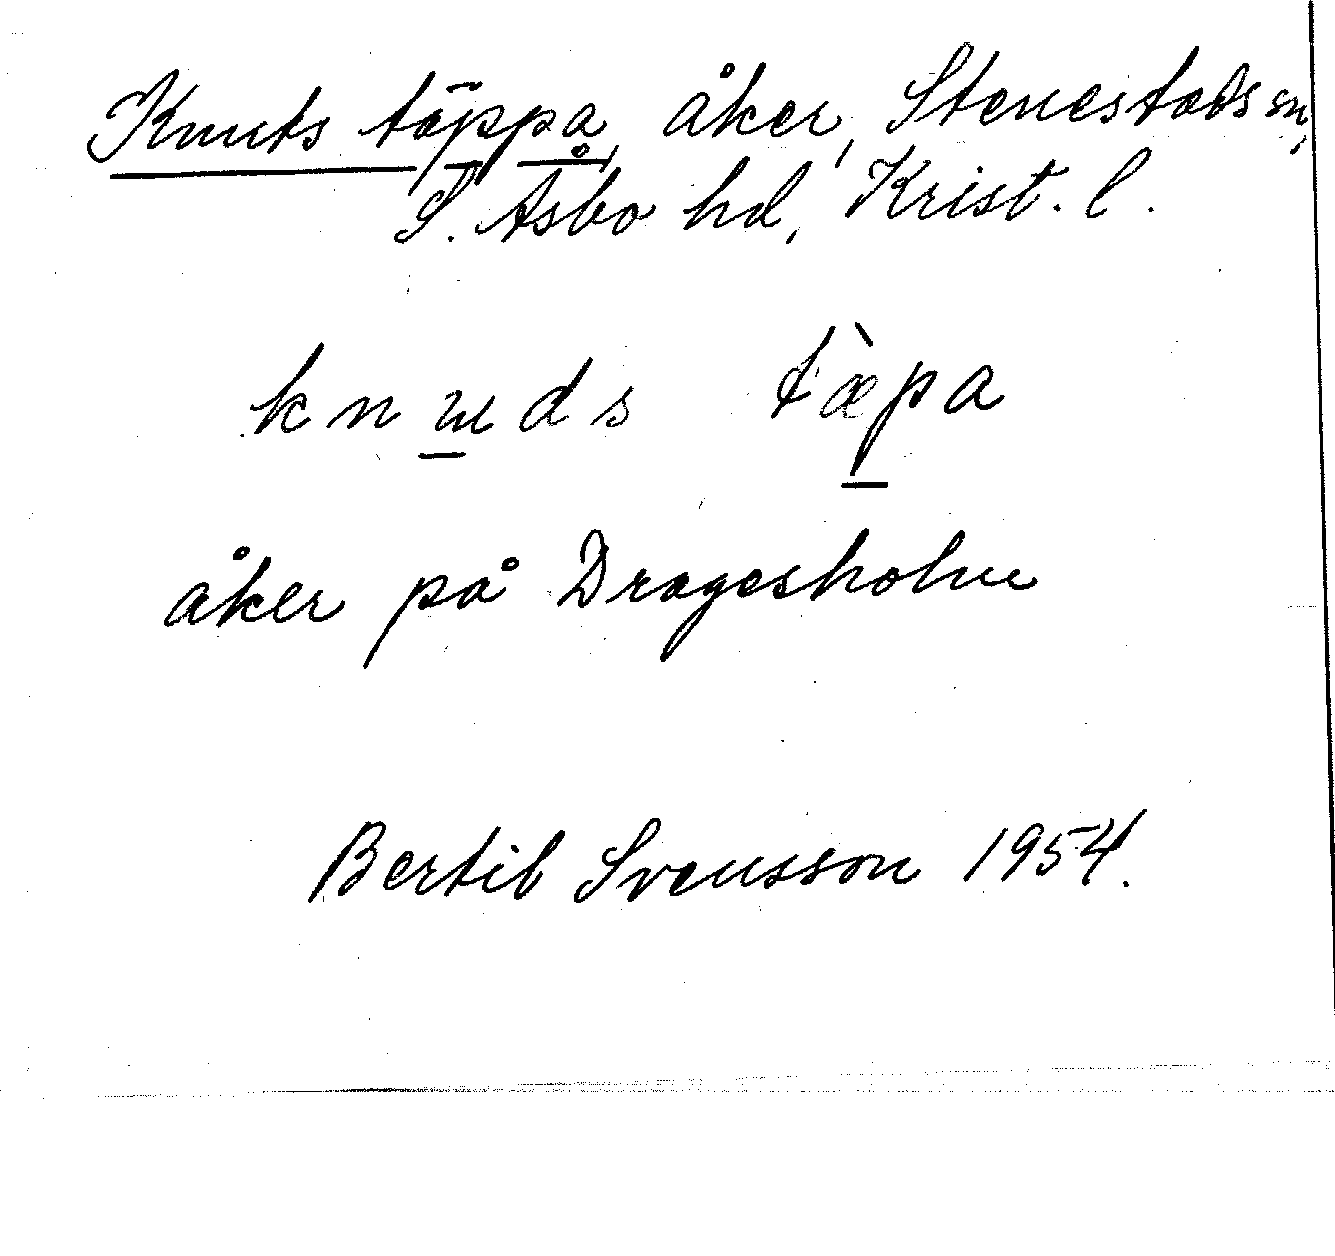 Knuts täppa, åker, Stenestads sn,
S. Åsbo hd, Krist. l.
knɯds tæ̀pa
åker på Dragesholm
Bertil Svensson 1954.